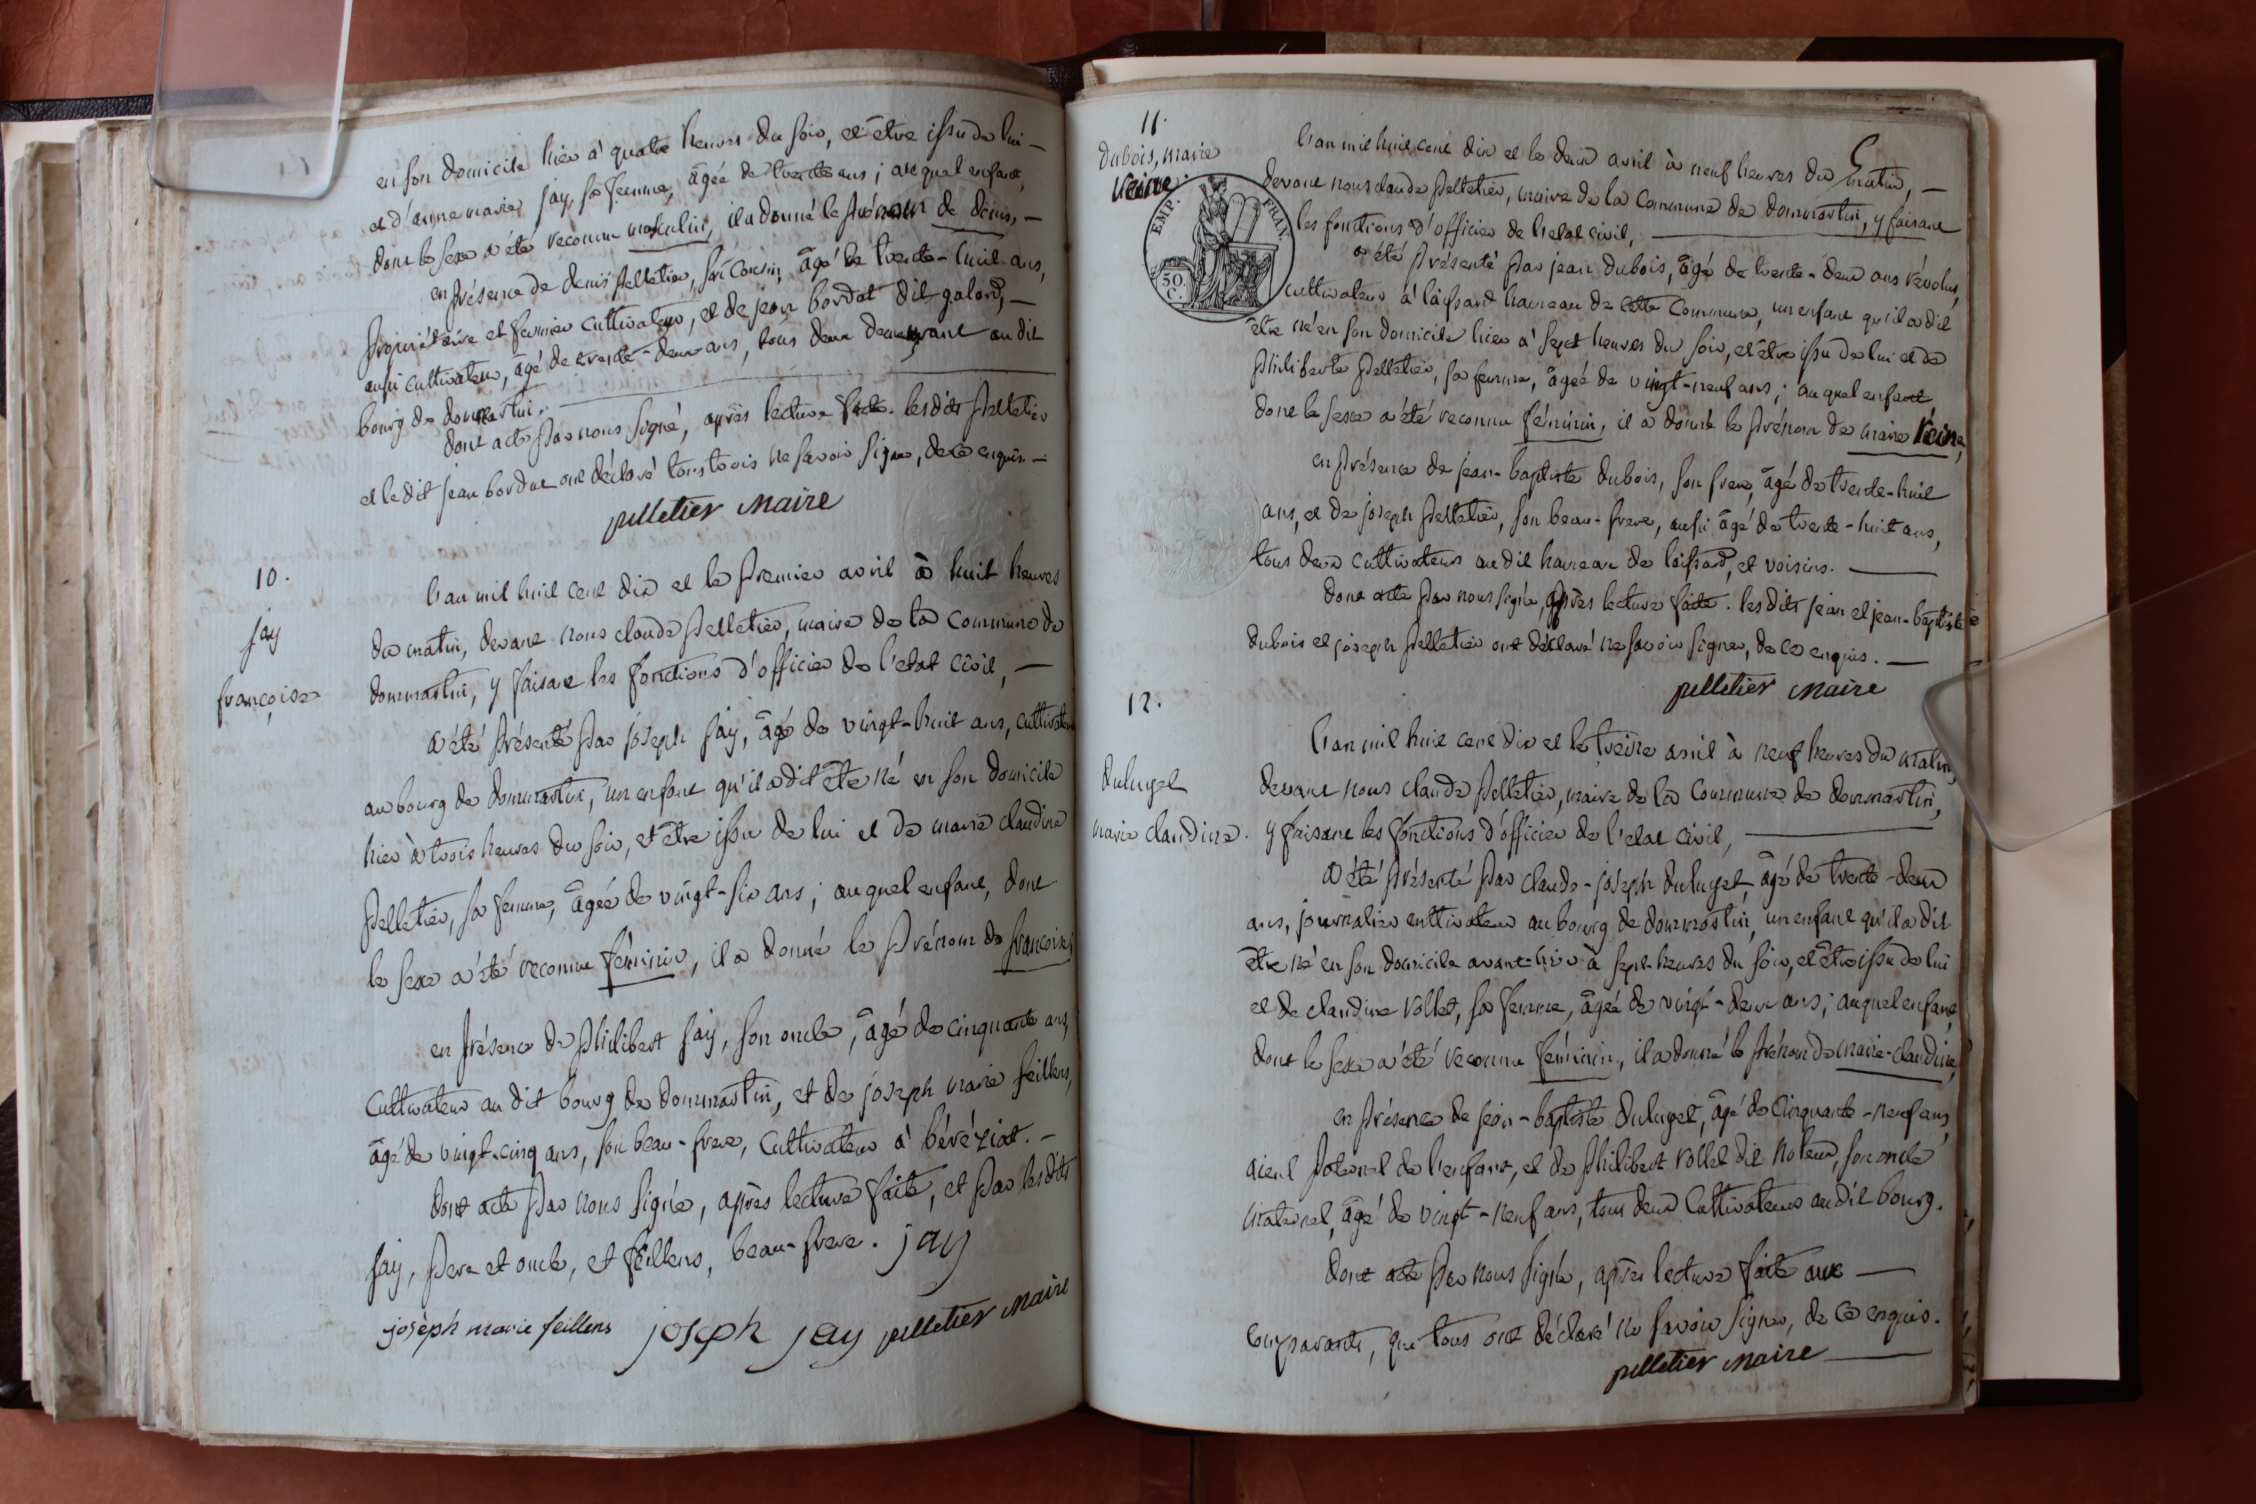 en son domicile hier à quatre heures du soir, et être issu de lui —
et d'anne marie jay, sa femme, âgée de trente ans ; auquel enfant,
dont le sexe a été reconnu masculin, il a donné le prénom de denis, —
en présence de denis pelletier, son cousin, âgé de trente-huit ans,
propriétaire et fermier cultivateur, et de jean bordat dit galand, —
aussi cultivateur, âgé de trente-deux ans, tous deux demeurant au dit
bourg de dommartin. —
dont acte par nous signé, après lecture faite. les dits pelletier
et le dit jean bordat ont déclaré tous trois ne savoir signer, de ce enquis. —
pelletier maire
10.
jay
françoise
L'an mil huit cent dix et le premier avril à huit heures
du matin, devant nous claude pelletier, maire de la commune de
dommartin, y faisant les fonctions d'officier de l'etat civil, —
a été présenté par joseph jay, âgé de vingt-huit ans, cultivateur
au bourg de dommartin, un enfant qu'il a dit être né en son domicile
hier à trois heures du soir, et être issu de lui et de marie claudine
pelletier, sa femme, âgée de vingt-six ans ; auquel enfant, dont
le sexe a été reconnu féminin, il a donné le prénom de françoise,
en présence de philibert jay, son oncle, âgé de cinquante ans,
cultivateur au dit bourg de dommartin, et de joseph marie feillens,
âgé de vingt-cinq ans, son beau-frere, cultivateur à béréziat. —
dont acte par nous signé, après lecture faite, et par les dits
jay, pere et oncle, et feillens, beau-frere. jay
joseph marie feillens joseph jay pelletier maire
11.
dubois, marie
reine.
EMP. FRAN.
50. C.
L'an mil huit cent dix et le deux avril à neuf heures du matin, —
devant nous claude pelletier, maire de la commune de dommartin, y faisant
les fonctions d'officier de l'etat civil, —
a été présenté par jean dubois, âgé de trente-deux ans révolus,
cultivateur à laissard hameau de cette commune, un enfant qu'il a dit
être né en son domicile hier à sept heures du soir, et être issu de lui et de
philiberte pelletier, sa femme, âgée de vingt-neuf ans ; auquel enfant
dont le sexe a été reconnu féminin, il a donné le prénom de marie reine,
en présence de jean-baptiste dubois, son frere, âgé de trente-huit
ans, et de joseph pelletier, son beau-frere, aussi âgé de trente-huit ans,
tous deux cultivateurs au dit hameau de laissard, et voisins. —
dont acte par nous signé, après lecture faite. les dits jean et jean-baptiste
dubois et joseph pelletier ont déclaré ne savoir signer, de ce enquis. —
pelletier maire
12.
duluget
marie claudine.
L'an mil huit cent dix et le treize avril à neuf heures du matin,
devant nous claude pelletier, maire de la commune de dommartin,
y faisant les fonctions d'officier de l'etat civil, —
a été présenté par claude-joseph duluget, âgé de trente-deux
ans, journalier cultivateur au bourg de dommartin, un enfant qu'il a dit
être né en son domicile avant-hier à sept heures du soir, et être issu de lui
et de claudine vollet, sa femme, âgée de vingt-deux ans ; auquel enfant,
dont le sexe a été reconnu féminin, il a donné le prénom de marie-claudine,
en présence de jean-baptiste duluget, âgé de cinquante-neuf ans,
aieul paternel de l'enfant, et de philibert vollet dit son oncle
maternel, âgé de vingt-neuf ans, tous deux cultivateurs au dit bourg.
dont acte par nous signé, après lecture faite aux —
comparants, que tous ont déclaré ne savoir signer, de ce enquis.
pelletier maire —